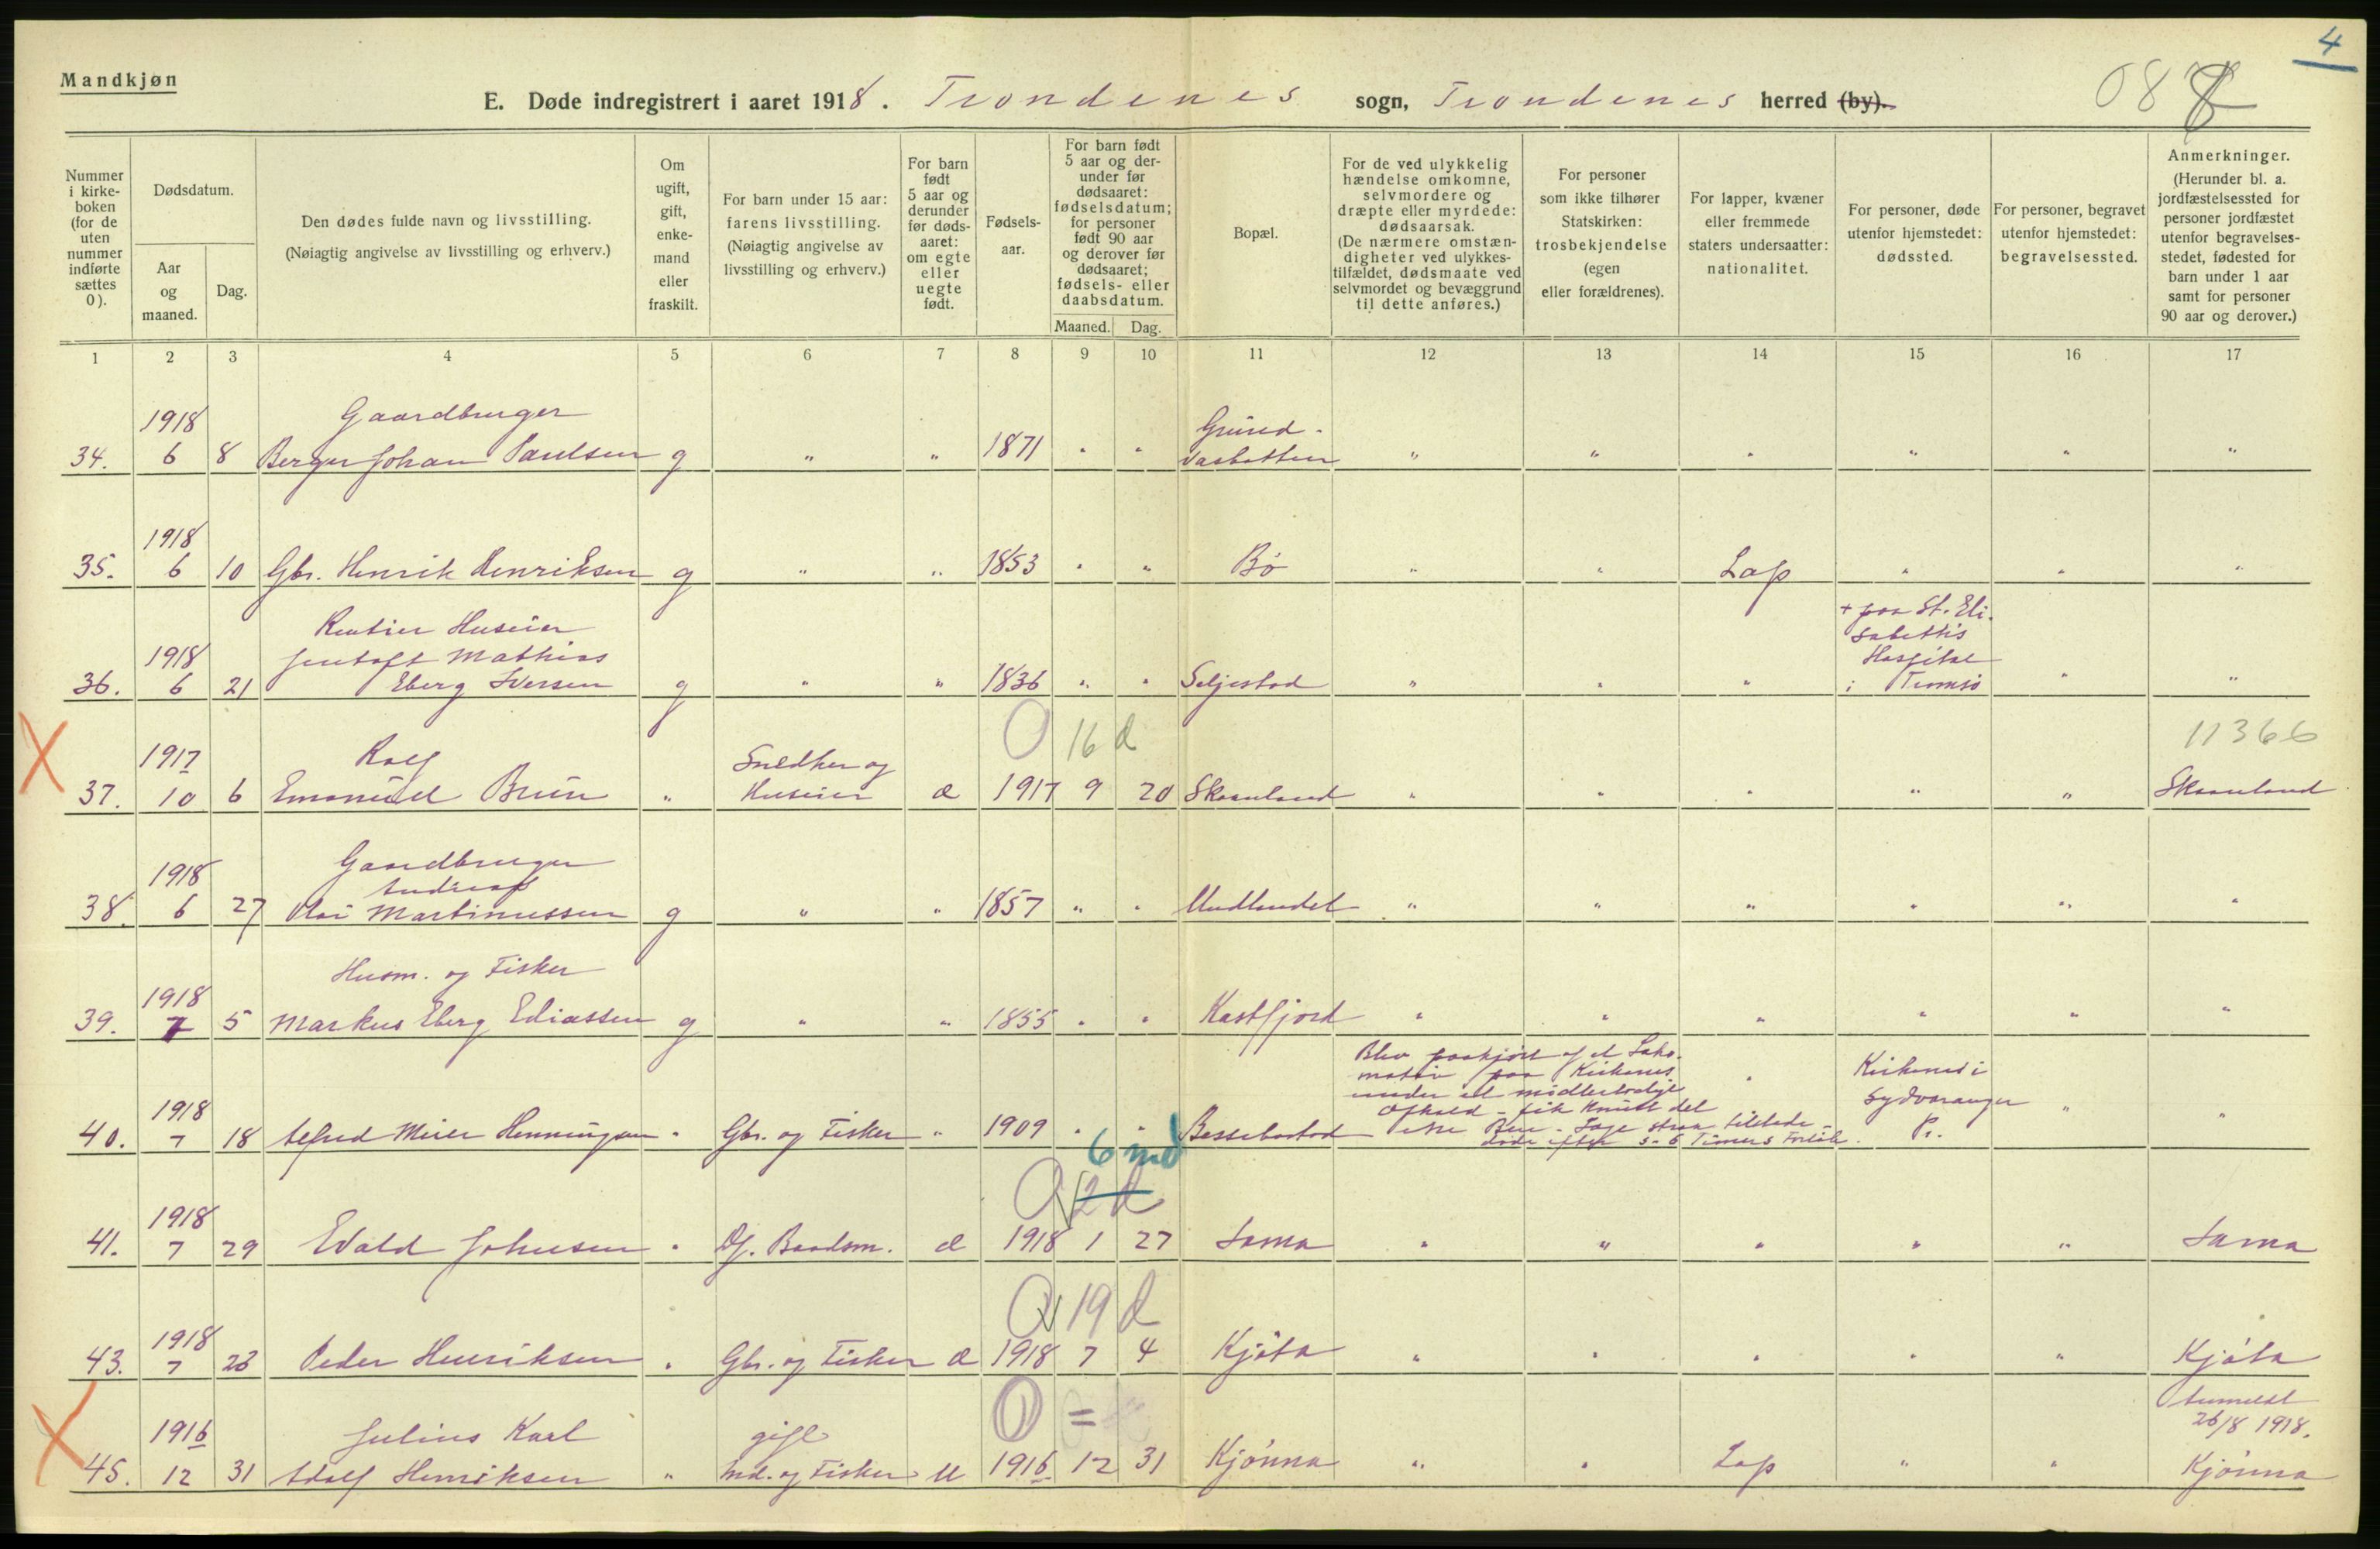 4
Mandkjøn
E. Døde indregistrert i aaret 1918. Trondenes sogn, Trondenes herred (by).
08
Nummer i kirkeboken (for de uten nummer indførte sættes 0).
Dødsdatum.
Aar og maaned.
Dag.
Den dødes fulde navn og livsstilling.
(Nøiagtig angivelse av livsstilling og erhverv.)
Om ugift, gift, enkemand eller fraskilt.
For barn under 15 aar: farens livsstilling.
(Nøiagtig angivelse av livsstilling og erhverv.)
For barn født 5 aar og derunder før dødsaaret: om egte eller uegte født.
Fødselsaar.
For barn født 5 aar og derunder før dødsaaret: fødselsdatum; for personer født 90 aar og derover før dødsaaret; fødsels- eller daabsdatum.
Maaned. Dag.
Bopæl.
For de ved ulykkelig hændelse omkomne, selvmordere og dræpte eller myrdede: dødsaarsak.
(De nærmere omstændigheter ved ulykkestilfældet, dødsmaate ved selvmordet og bevæggrund til dette anføres.)
For personer som ikke tilhører Statskirken: trosbekjendelse (egen eller forældrenes).
For lapper, kvæner eller fremmede staters undersaatter: nationalitet.
For personer, døde utenfor hjemstedet: dødssted.
For personer, begravet utenfor hjemstedet: begravelsessted.
Anmerkninger.
(Herunder bl. a. jordfæstelsessted for personer jordfæstet utenfor begravelsesstedet, fødested for barn under 1 aar samt for personer 90 aar og derover.)
1 2 3 4 5 6 7 8 9 10 11 12 13 14 15 16 17
1918 Gaardbruger
34. 6 8 Berger Johan Paulsen g " " 1871 " " Grund- vasbotten " " " " " "
1918
35. 6 10 Gbr. Henrik Henriksen g " " 1853 " " Bø " " Lap " " "
Rentier Huseier
1918 Jentoft Mathias
36. 6 21 Eberg Iversen g " " 1836 " " Seljestad " " " + paa St. Elisabeths Hospital i Tromsø " "
0 16 d 11366
1917 Rolf Snedker og
37. 10 6 Emanuel Bruun " Huseier æ 1917 9 20 Skaanland " " " " " Skaanland
Gaardbruger
1918 Andreas
38. 6 27 Martinussen g " " 1857 " " Undlandet " " " " " "
Husm. og Fisker
1918
39. 7 5 Markus Eberg Eliassen g " " 1855 " " Kastfjord " " " " " "
1918
40. 7 18 Alfred Meier Henningsen " Gbr. og Fisker " 1909 " " Bessebostad Blev paakjørt af et Loko-
motiv paa Kirkenes
under et midlertidigt
Ophold - fik knust det
ene Ben - Læge straks tilstede -
døde efter 5-6 Timers Forløb. " Kirkenes i Sydvaranger Pr. " "
6 md
0 2 d
1918
41. 7 29 Edvald Johnsen " Df. Baadsm. æ 1918 1 27 Sama " " " " " Sama
0 19 d
1918
43. 7 23 Peder Henriksen " Gbr. og Fisker æ 1918 7 4 Kjøta " " " " " Kjøta
0 =
Anmeldt
26/8 1918.
1916 Julius Karl gift
45. 12 31 Adolf Henriksen " Ind. og Fisker u 1916 12 31 Kjønna " " Lap " " Kjønna